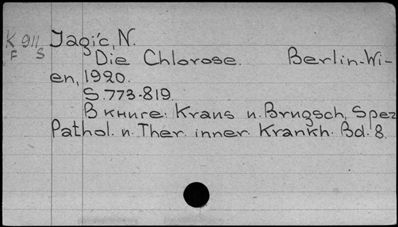 K 911 Jagić, N.
F S
Die Chlorose. Berlin-Wi-
en, 1920.
S. 773-819.
В книге: Kraus u. Brugsch, Spez
Pathol. u. Ther. inner. Krankh. Bd. 8.